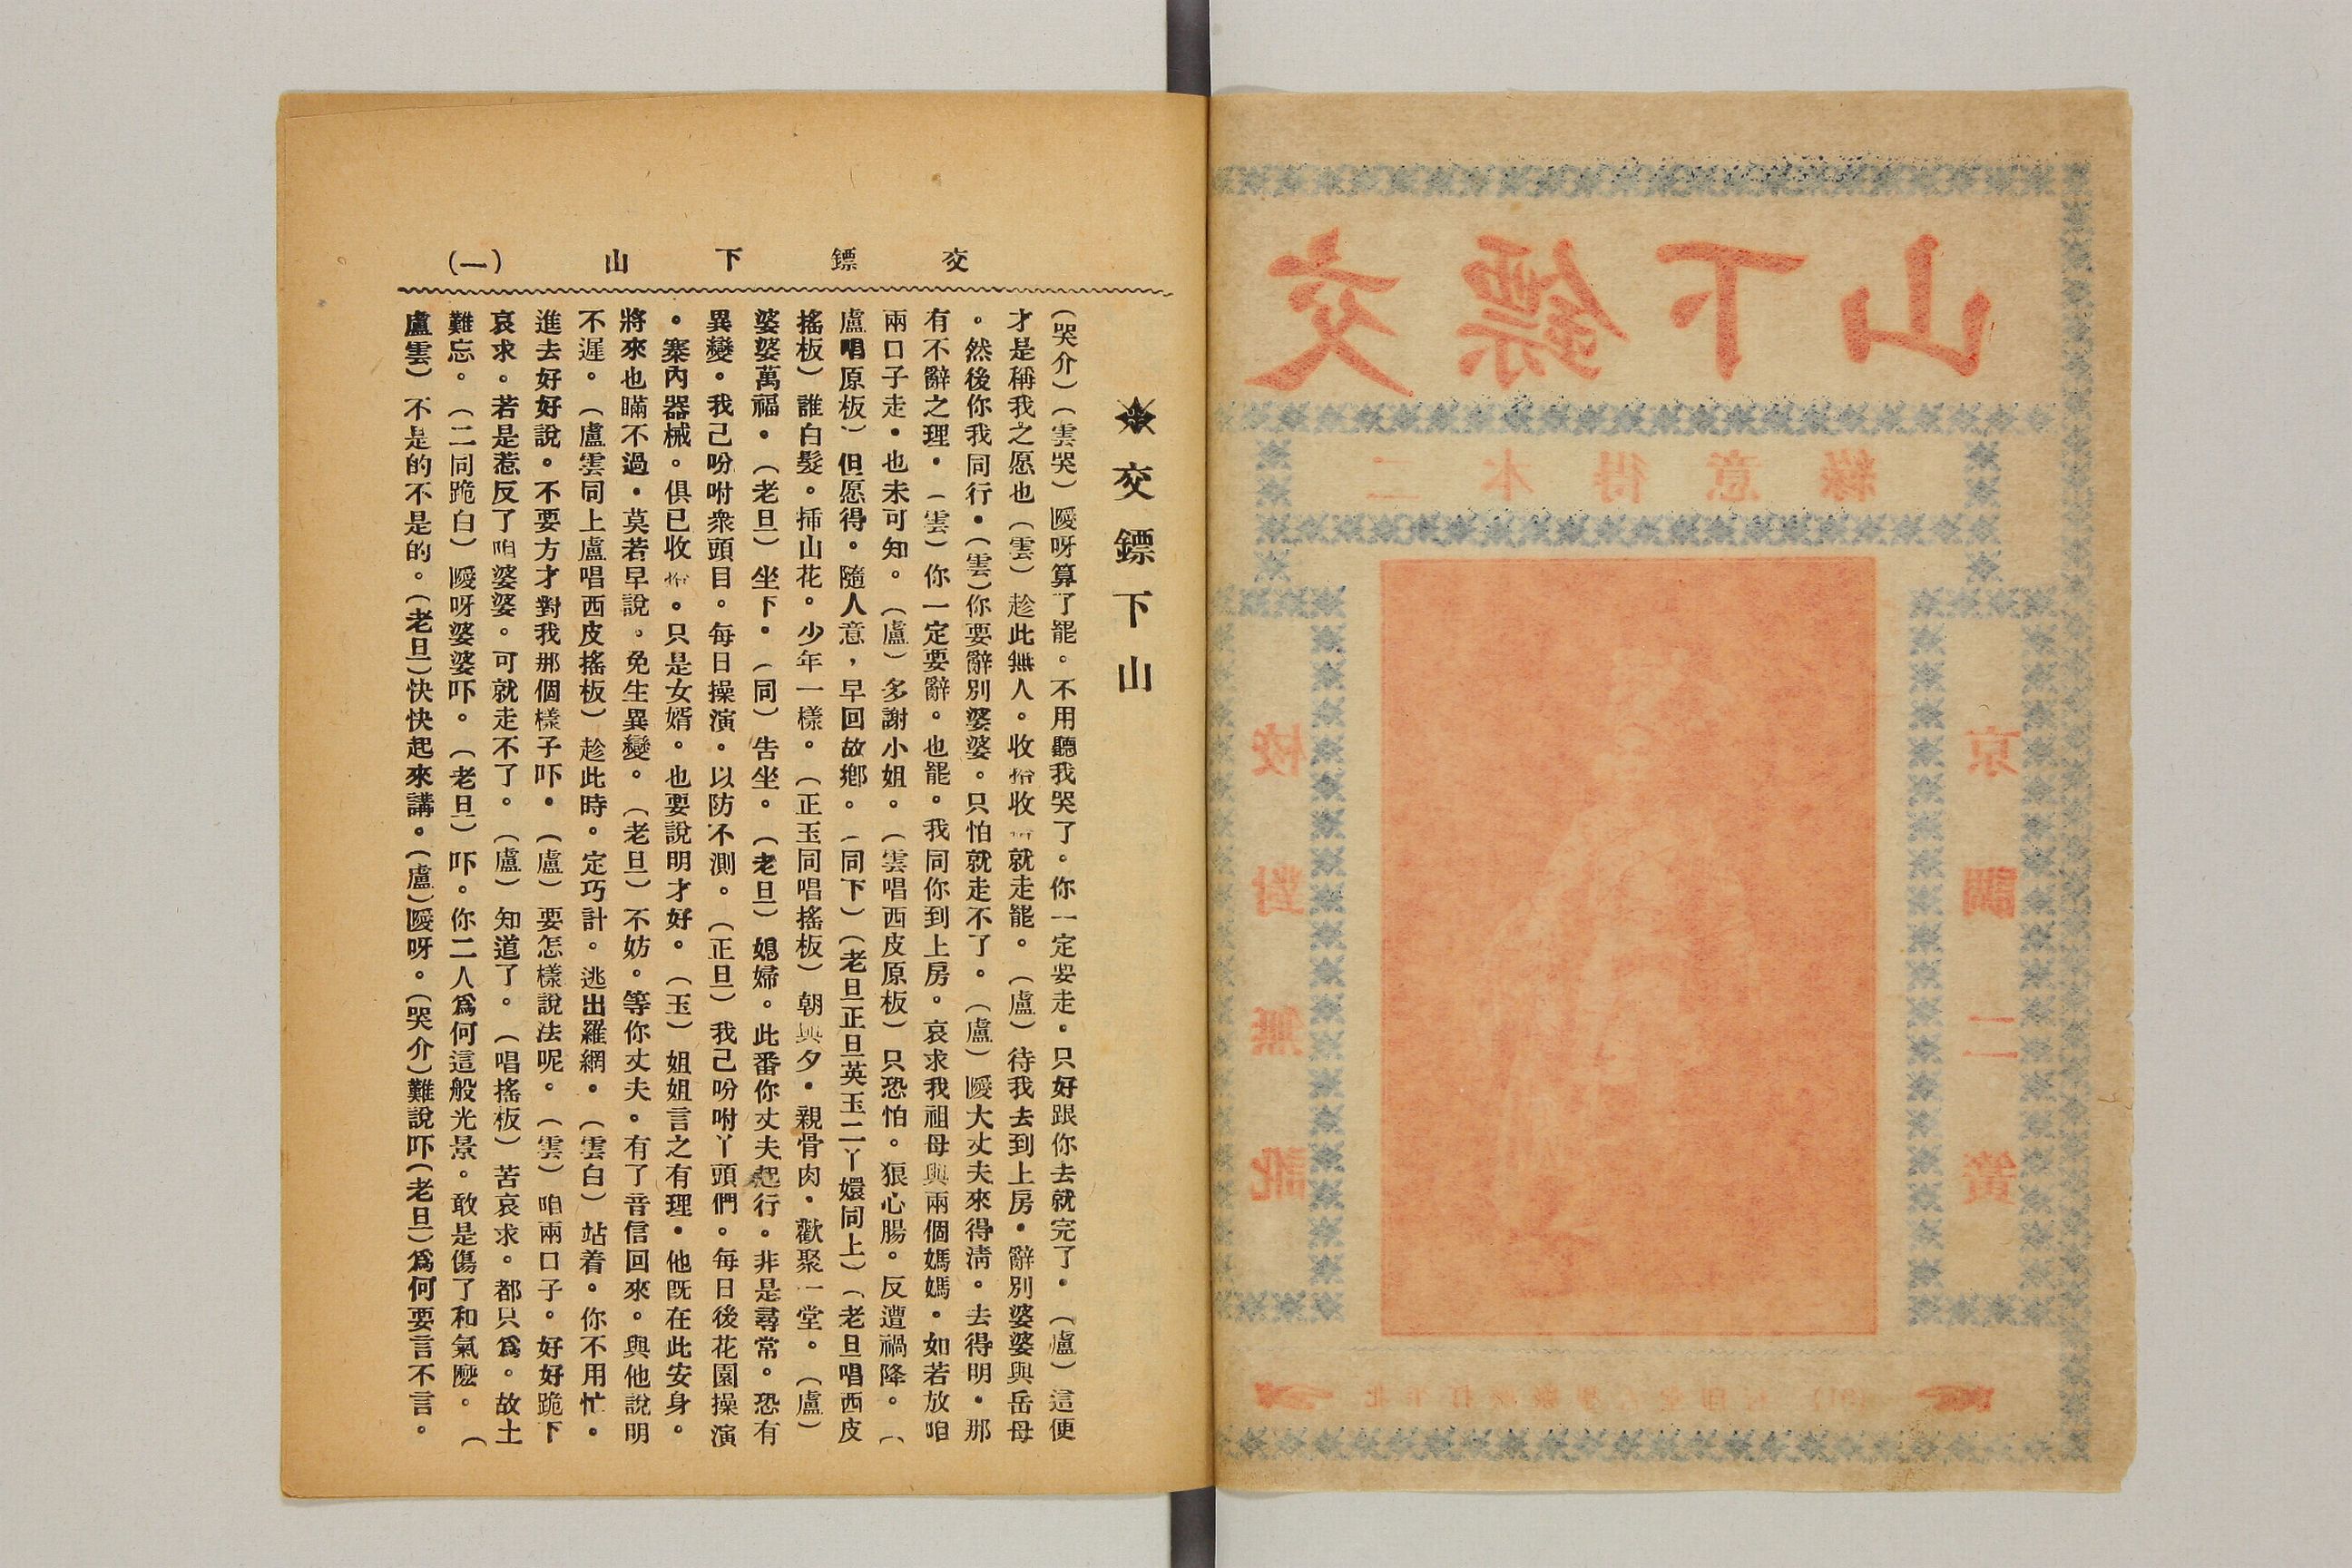 交鏢下山
二本得意緣
京調二簧
校對無訛
交鏢下山 (一)
交鏢下山
(哭介)(雲哭)噯呀算了罷。不用聽我哭了。你一定要走。只好跟你去就完了。(盧)這便
才是稱我之愿也(雲)趁此無人。收拾收拾就走罷。(盧)待我去到上房。辭別婆婆與岳母
。然後你我同行。(雲)你要辭別婆婆。只怕就走不了。(盧)噯大丈夫來得淸。去得明。那
有不辭之理。(雲)你一定要辭。也罷。我同你到上房。哀求我祖母與兩個媽媽。如若放咱
兩口子走。也未可知。(盧)多謝小姐。(雲唱西皮原板)只恐怕。狠心腸。反遭禍降。(
盧唱原板)但愿得。隨人意，早回故鄉。(同下)(老旦正旦英玉二丫嬛同上)(老旦唱西皮
搖板)誰白髮。揷山花。少年一樣。(正玉同唱搖板)朝與夕。親骨肉。歡聚一堂。(盧)
婆婆萬福。(老旦)坐下。(同)告坐。(老旦)媳婦。此番你丈夫起行。非是尋常。恐有
異變。我己吩咐衆頭目。每日操演。以防不測。(正旦)我己吩咐丫頭們。每日後花園操演
。寨內器械。俱已收拾。只是女婿。也要說明才好。(玉)姐姐言之有理。他旣在此安身。
將來也瞞不過。莫若早說。免生異變。(老旦)不妨。等你丈夫。有了音信回來。與他說明
不遲。(盧雲同上盧唱西皮搖板)趁此時。定巧計。逃出羅網。(雲白)站着。你不用忙。
進去好好說。不要方才對我那個樣子吓。(盧)要怎樣說法呢。(雲)咱兩口子。好好跪下
哀求。若是惹反了咱婆婆。可就走不了。(盧)知道了。(唱搖板)苦哀求。都只爲。故土
難忘。(二同跪白)噯呀婆婆吓。(老旦)吓。你二人爲何這般光景。敢是傷了和氣麼。(
盧雲)不是的不是的。(老旦)快快起來講。(盧)噯呀。(哭介)難說吓(老旦)爲何要言不言。